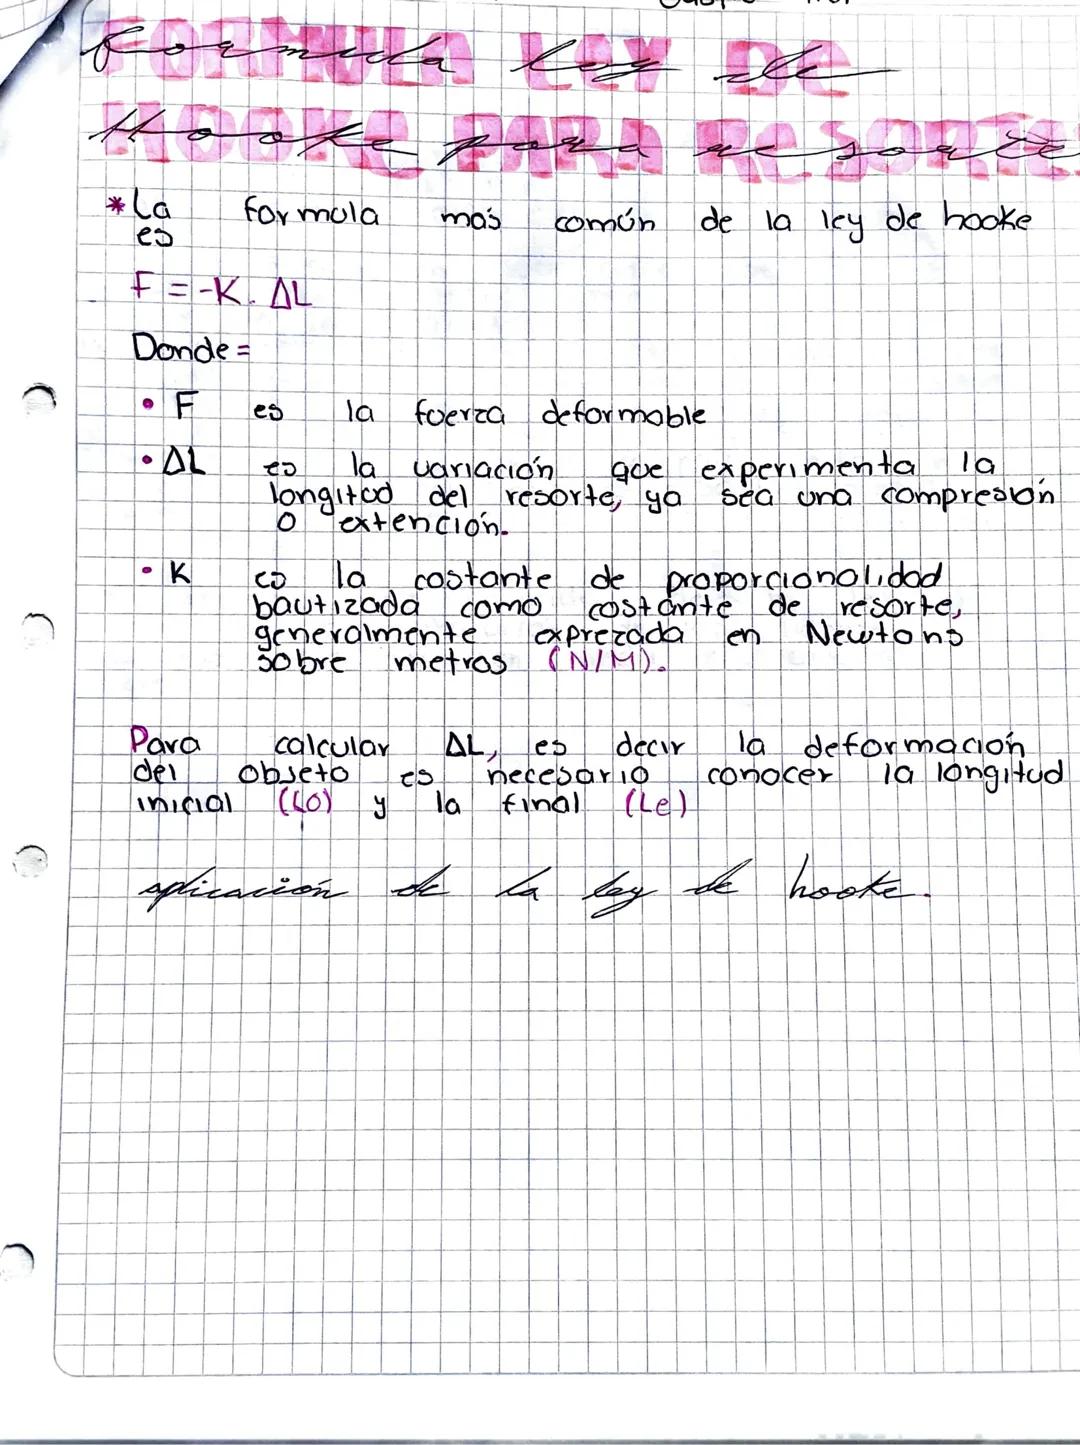 Formula ley de
Hooke para resorte
*La formula más común de la ley de hooke
es
F = -K. ΔL
Donde =
• F es la fuerza deformable
• ΔL es la variación que experimenta la
longitud del resorte, ya sea una compresión
o extención.
• K es la costante de proporcionalidad
bautizada como costante de resorte,
generalmente exprezada en Newtons
sobre metros (N/M).
Para calcular ΔL, es decir la deformación
del objeto es necesario conocer la longitud
inicial (LO) y la final (Le)
aplicación de la ley de hooke.